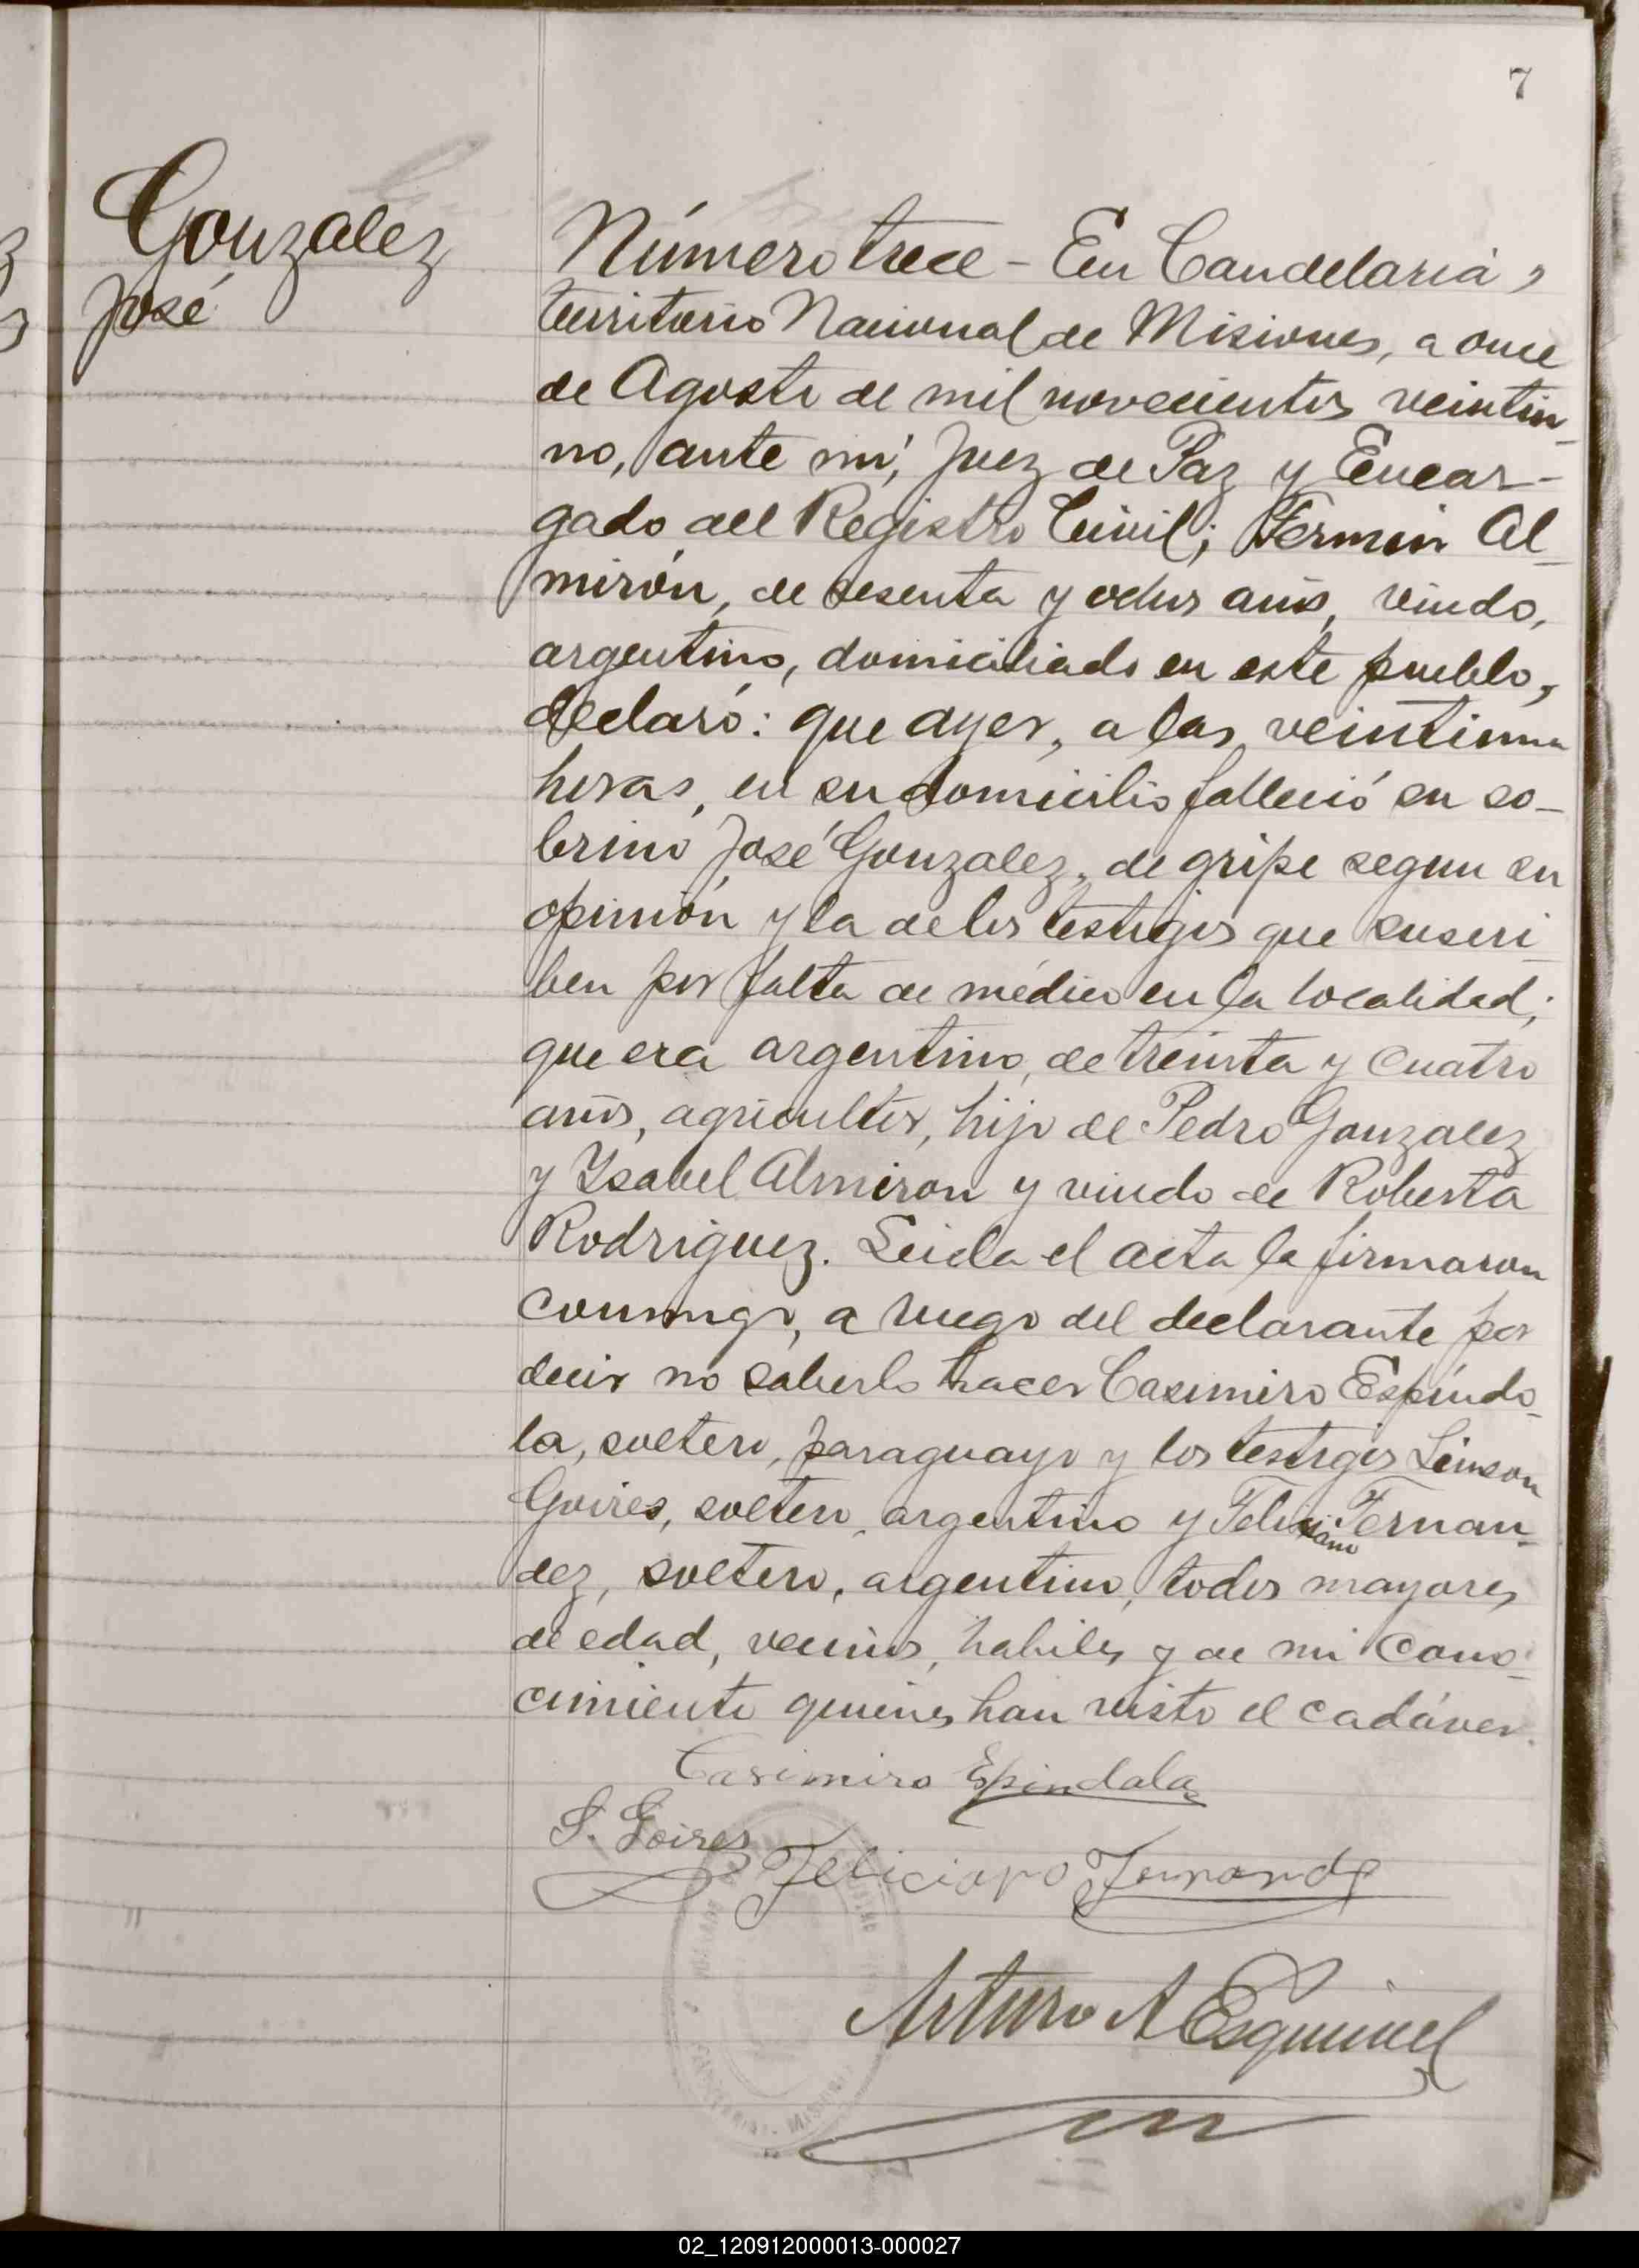 7
Gonzalez
José
Número trece - En Candelaria,
territorio Nacional de Misiones, a once
de Agosto de mil novecientos veintiu-
no, ante mí, Juez de Paz y Encar-
gado del Registro Civil; Fermin Al-
mirón, de sesenta y ochos años, viudo,
argentino, domiciliado en este pueblo,
declaró: que ayer, a las veintiuna
horas, en su domicilio falleció su so-
brino José Gonzalez, de gripe segun su
opinión y la de los testigos que suscri-
ben por falta de médico en la localidad;
que era argentino, de treinta y cuatro
años, agricultor, hijo de Pedro Gonzalez
y Ysabel Almiron y viudo de Roberta
Rodriguez. Leida el acta la firmaron
conmigo, a ruego del declarante por
decir no saberlo hacer Casimiro Espíndo-
la, soltero, paraguayo y los testigos Simeon
Goires, soltero, argentino y Feliciano Fernan-
dez, soltero, argentino, todos mayores
de edad, vecinos, habiles y de mi cono-
cimiento quienes han visto el cadáver.
Casimiro Espindala
S. Goires
Feliciano Fernande
Arturo A Esquivel
02_120912000013-000027